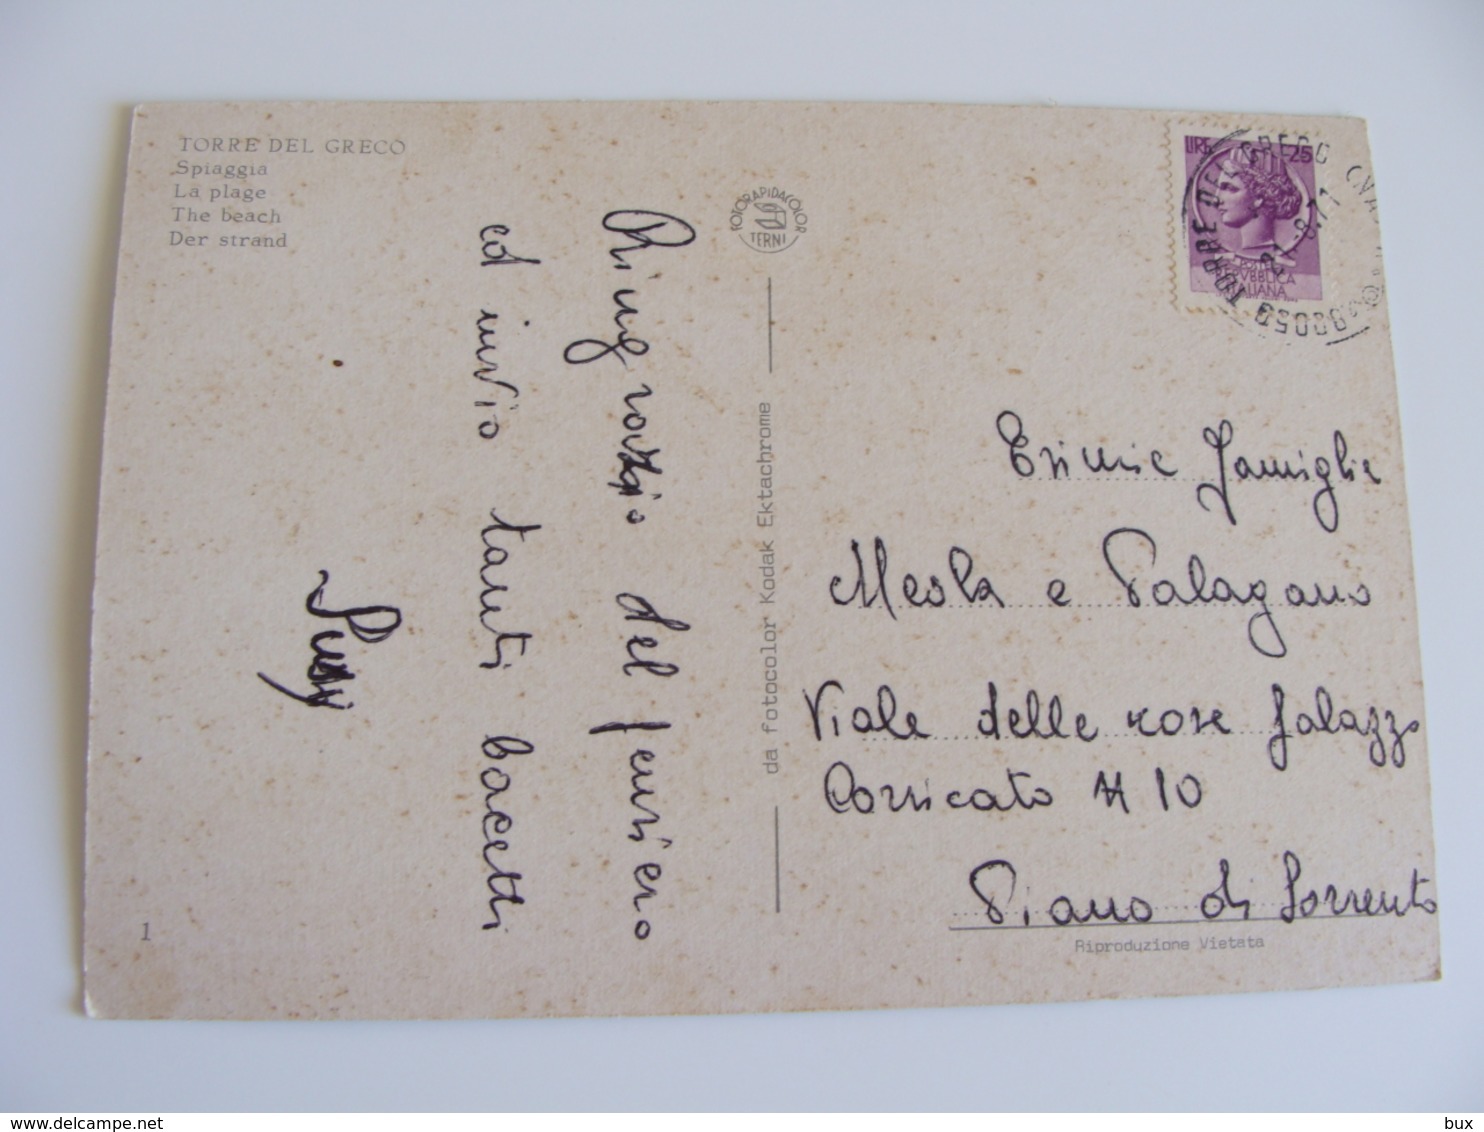 TORRE DEL GRECO
Spiaggia
La plage
The beach
Der strand
Ringrazio del pensiero
ed invio tanti bacetti
Susy
1
FOTORAPIDACOLOR
TERNI
da fotocolor Kodak Ektachrome
LIRE 25
POSTE
REPVBBLICA
ITALIANA
80059 TORRE DEL GRECO (NA)
Famiglie
Meola e Palagano
Viale delle rose Palazzo
Corricato N 10
Piano di Sorrento
Riproduzione Vietata
bux